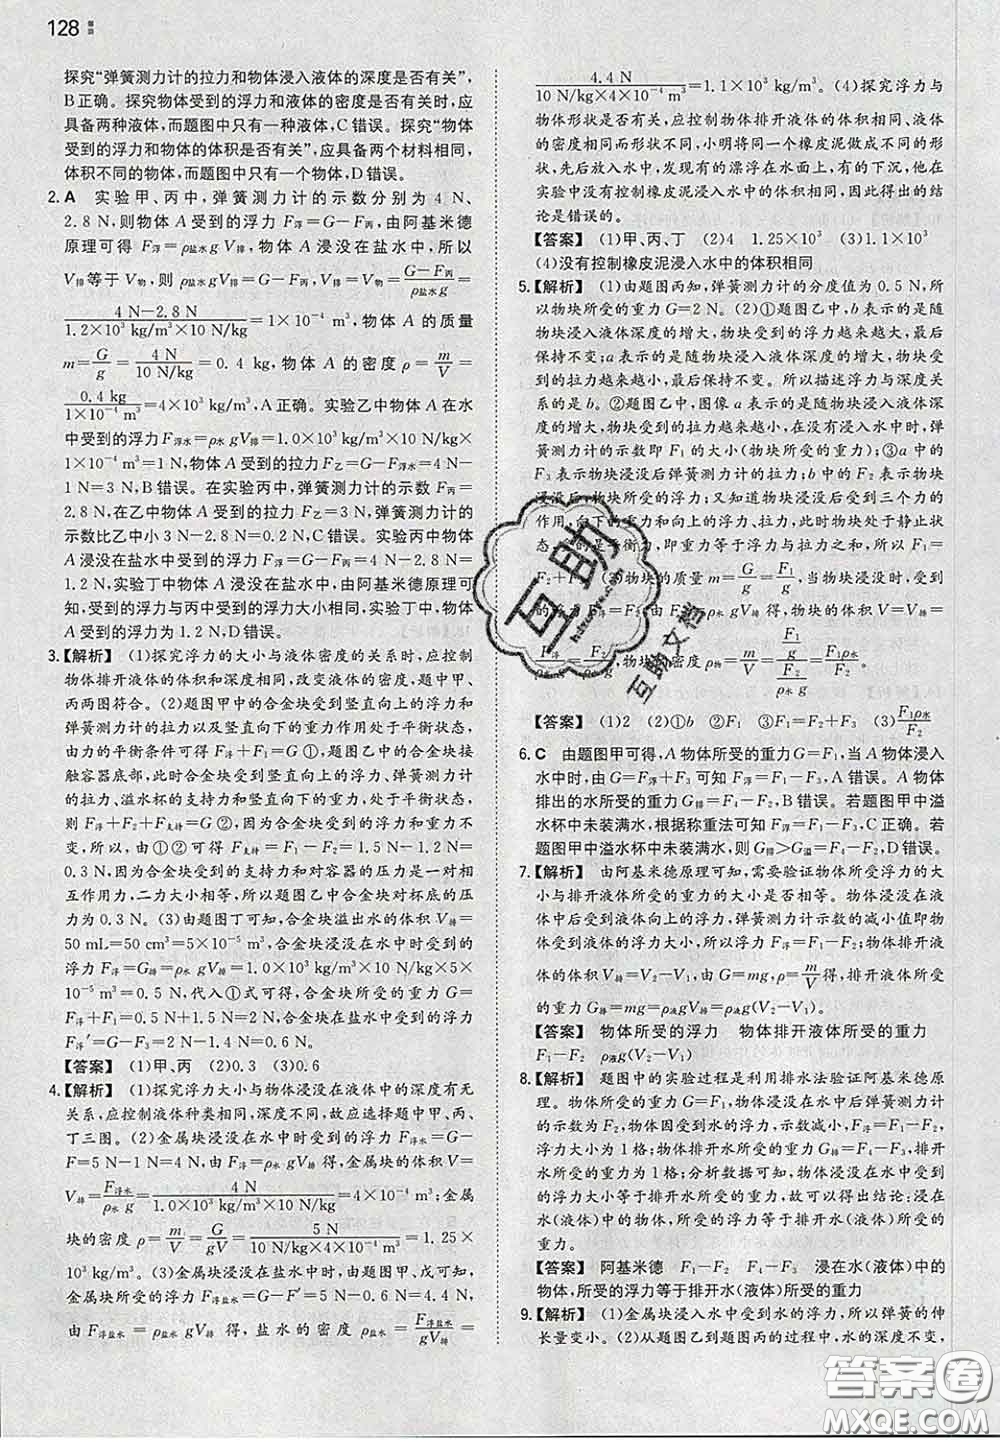 128
探究“弹簧测力计的拉力和物体浸入液体的深度是否有关”,
B正确。探究物体受到的浮力和液体的密度是否有关时,应
具备两种液体,而题图中只有一种液体,C错误。探究“物体
受到的浮力和物体的体积是否有关”,应具备两个材料相同,
体积不同的物体,而题图中只有一个物体,D错误。
2. A 实验甲、丙中,弹簧测力计的示数分别为 4 N、
2.8 N,则物体 A 受到的浮力 F浮=G−F丙,由阿基米德
原理可得 F浮=ρ盐水 gV排,物体 A 浸没在盐水中,所以
V排等于 V物,则 ρ盐水 gV排=G−F丙,V排=(G−F丙)/(ρ盐水 g)
=(4 N−2.8 N)/(1.2×10³ kg/m³×10 N/kg)=1×10⁻⁴ m³,物体 A 的质量
m=G/g=4 N/(10 N/kg)=0.4 kg,物体 A 的密度 ρ=m/V=
0.4 kg/(1×10⁻⁴ m³)=4×10³ kg/m³,A正确。实验乙中物体 A 在水
中受到的浮力 F浮水=ρ水 gV排=1.0×10³ kg/m³×
10 N/kg×1×10⁻⁴ m³=1 N,在实验乙中,弹簧测力计
对物体 A 受到的拉力 F乙=G−F浮水=4 N−1 N=
3 N,B错误。在实验丙中,弹簧测力计的示数 F丙=
2.8 N,在乙中物体受到的拉力为 3 N,弹簧测力计的
示数比乙中小 3 N−2.8 N=0.2 N,C错误。实验丙中物体
A 浸没在盐水中受到的浮力 F浮=G−F丙=4 N−2.8 N=
1.2 N,实验丁中物体 A 浸没在盐水中,由阿基米德原理可
知,实验丁中受到的浮力与丙中受到的浮力大小相同,物体
A 受到的浮力为 1.2 N,D错误。
3.【解析】 (1)探究浮力的大小与液体密度的关系时,应控制
物体排开液体的体积和深度相同,改变液体的密度,题中甲、
丙两图符合。(2)题图甲中的合金块受到竖直向上的浮力和
弹簧测力计的拉力以及竖直向下的重力作用处于平衡状态,
由力的平衡条件可得 F浮+F₁=G ①,题图乙中合金块接
触容器底部,此时合金块受到竖直向上的浮力、弹簧测力计
的拉力、溢水杯的支持力和竖直向下的重力,处于平衡状态,
则 F浮+F₂+F支持=G ②,因为合金块受到的浮力和重力不
变,所以,由①②可得 F支持=F₁−F₂=1.5 N−1.2 N=
0.3 N,因为合金块受到的支持力和对容器的压力是一对相
互作用力,二力大小相等,所以题图乙中合金块对杯底的压
力为 0.3 N。(3)由题图丁可知,合金块溢出水的体积 V排=
50 mL=50 cm³=5×10⁻⁵ m³,合金块浸没在水中时受到的
浮力 F浮=G排=ρ水 gV排=1.0×10³ kg/m³×10 N/kg×5×
10⁻⁵ m³=0.5 N,代入①式可得,合金块所受的重力 G=
F浮+F₁=0.5 N+1.5 N=2 N,合金块在盐水中受到的浮力
F浮′=G−F₃=2 N−1.4 N=0.6 N。
【答案】 (1)甲、丙 (2)0.3 (3)0.6
4.【解析】 (1)探究浮力大小与物体浸没在液体中的深度有无
关系,应控制液体种类相同,深度不同,故应选择题中甲、丙、
丁三图。(2)金属块浸没在水中时受到的浮力 F浮水=G−
F=5 N−1 N=4 N,由 F浮水=ρ水 gV排得,金属块的体积
V=V排=F浮水/(ρ水 g)=4 N/(1.0×10³ kg/m³×10 N/kg)=4×10⁻⁴ m³;金属
块的密度 ρ=m/V=G/(gV)=5 N/(10 N/kg×4×10⁻⁴ m³)=1.25×
10³ kg/m³。(3)金属块浸没在盐水中时,由题图甲、戊可知,
受到的浮力 F浮盐水=G−F′=5 N−0.6 N=4.4 N,
由 F浮盐水=ρ盐水 gV排 得,盐水的密度 ρ盐水=F浮盐水/(gV排)=
4.4 N/(10 N/kg×4×10⁻⁴ m³)=1.1×10³ kg/m³。(4)探究浮力与
物体形状是否有关,应控制物体排开液体的体积相同、液体的
密度相同而形状不同,小明将两块相同的橡皮泥做成不同的形
状,先后放入水中,发现有的漂浮在水面上,有的下沉,他在
实验中没有控制橡皮泥浸入水中的体积相同,因此得出的结
论是错误的。
【答案】 (1)甲、丙、丁 (2)4 1.25×10³ (3)1.1×10³
(4)没有控制橡皮泥浸入水中的体积相同
5.【解析】 (1)由题图丙知,弹簧测力计的分度值为 0.5 N,所
以物块所受的重力 G=2 N。(2)①题图乙中,b 表示的是随
物块浸入液体深度的增大,物块受到的浮力越来越大,最后
保持不变;a 表示的是随物块浸入液体深度的增大,物块受
到的拉力越来越小,最后保持不变。所以描述浮力与深度关
系的是 b。②题图乙中,图像 a 表示的是随物块浸入液体深
度的增大,物块受到的拉力越来越小,在物块没有浸入水中
时弹簧测力计的示数即 F₁ 的大小(物块所受的重力);③a 中的
F₃ 表示物块浸没后弹簧测力计的拉力;b 中的 F₂ 表示物块
浸没后,物块所受的浮力;又知道物块浸没后受到三个力的
作用,向下的重力和向上的浮力、拉力,此时物块处于静止状
态,受到的是平衡力,即重力等于浮力与拉力之和,所以 F₁=
F₂+F₃。(3)物块的质量 m=G/g=F₁/g,当物块浸没时,受到
的浮力
物块的密度 ρ物=m/V=(F₁/g)/(F₂/(ρ水 g))=F₁ρ水/F₂。
【答案】 (1)2 (2)①b ②F₁ ③F₁=F₂+F₃ (3)F₁ρ水/F₂
6. C 由题图甲可得,A 物体所受的重力 G=F₁,当 A 物体浸入
水中时,由 G=F浮+F₃ 可知 F浮=F₁−F₃,A 错误。A 物体
排出的水所受的重力 G排=F₄−F₂,B 错误。若题图甲中溢
水杯中未装满水,根据称重法可知 F浮=F₁−F₃,C 正确。若
题图甲中溢水杯中未装满水,则 G排>G溢=F₄−F₂,D 错误。
7.【解析】 由阿基米德原理可知,需要验证物体所受浮力的大小
与排开液体所受的重力的大小是否相等。物体浸没在液体
中后受到液体向上的浮力,弹簧测力计示数的减小值即物体
受到的浮力大小,所以浮力 F浮=F₁−F₂。物体排开液
体的体积 V排=V₂−V₁,由 G=mg,ρ=m/V得,排开液体所受的
重力 G排=mg=ρ液gV排=ρ液g(V₂−V₁)。
【答案】 物体所受的浮力 物体排开液体所受的重力
F₁−F₂ ρ液g(V₂−V₁)
8.【解析】 题图中的实验过程是利用排水法验证阿基米德原
理。物体所受的重力 G=F₁,物体浸没在水中后弹簧测力计
的示数为 F₂,物体因受到水的浮力,示数减小,F浮=F₁−F₂,
浮力大小为 1 格;物体排开水所受的重力 G排=F₃−F₄,排开水
所受的重力为 1 格;分析数据可知,物体浸没在水中受到的浮力
大小等于排开水所受的重力大小,故可以得出结论:浸在
水(液体)中的物体,所受的浮力等于排开水(液体)所受的
重力。
【答案】 阿基米德 F₁−F₂ F₃−F₄ 浸在水(液体)中的
物体,所受的浮力等于排开水(液体)所受的重力
9.【解析】 (1)金属块浸入水中受到水的浮力,所以弹簧的伸
长量变小。(2)从题图乙到题图丙的过程中,水的深度不变,
互助
互助文档
答案圈
MXQE.COM